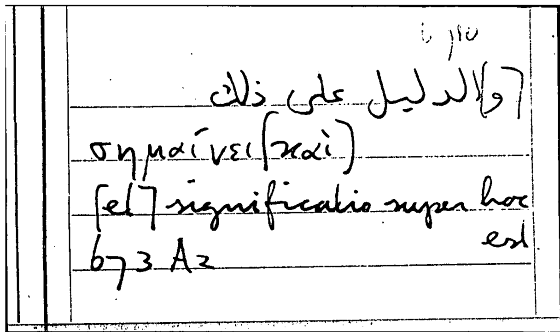 [و]الدليل على ذلك
σημαίνει (καὶ)
[et] significatio super hoc
est
673 A2